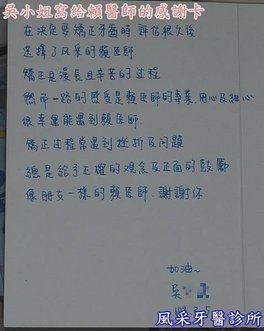 吳小姐寫給賴醫師的感謝卡
在決定要矯正牙齒時,評估很久後
選擇了风采的賴医師
矯正是漫長且辛苦的过程
然而一路的感受是賴医師的專業,用心及細心
很幸運能遇到賴医師
矯正过程常遇到挫折及问題
總是給予正確的观念及正面的鼓勵
像朋友一樣的賴医師,謝謝你
加油~
吳
風采牙醫診所